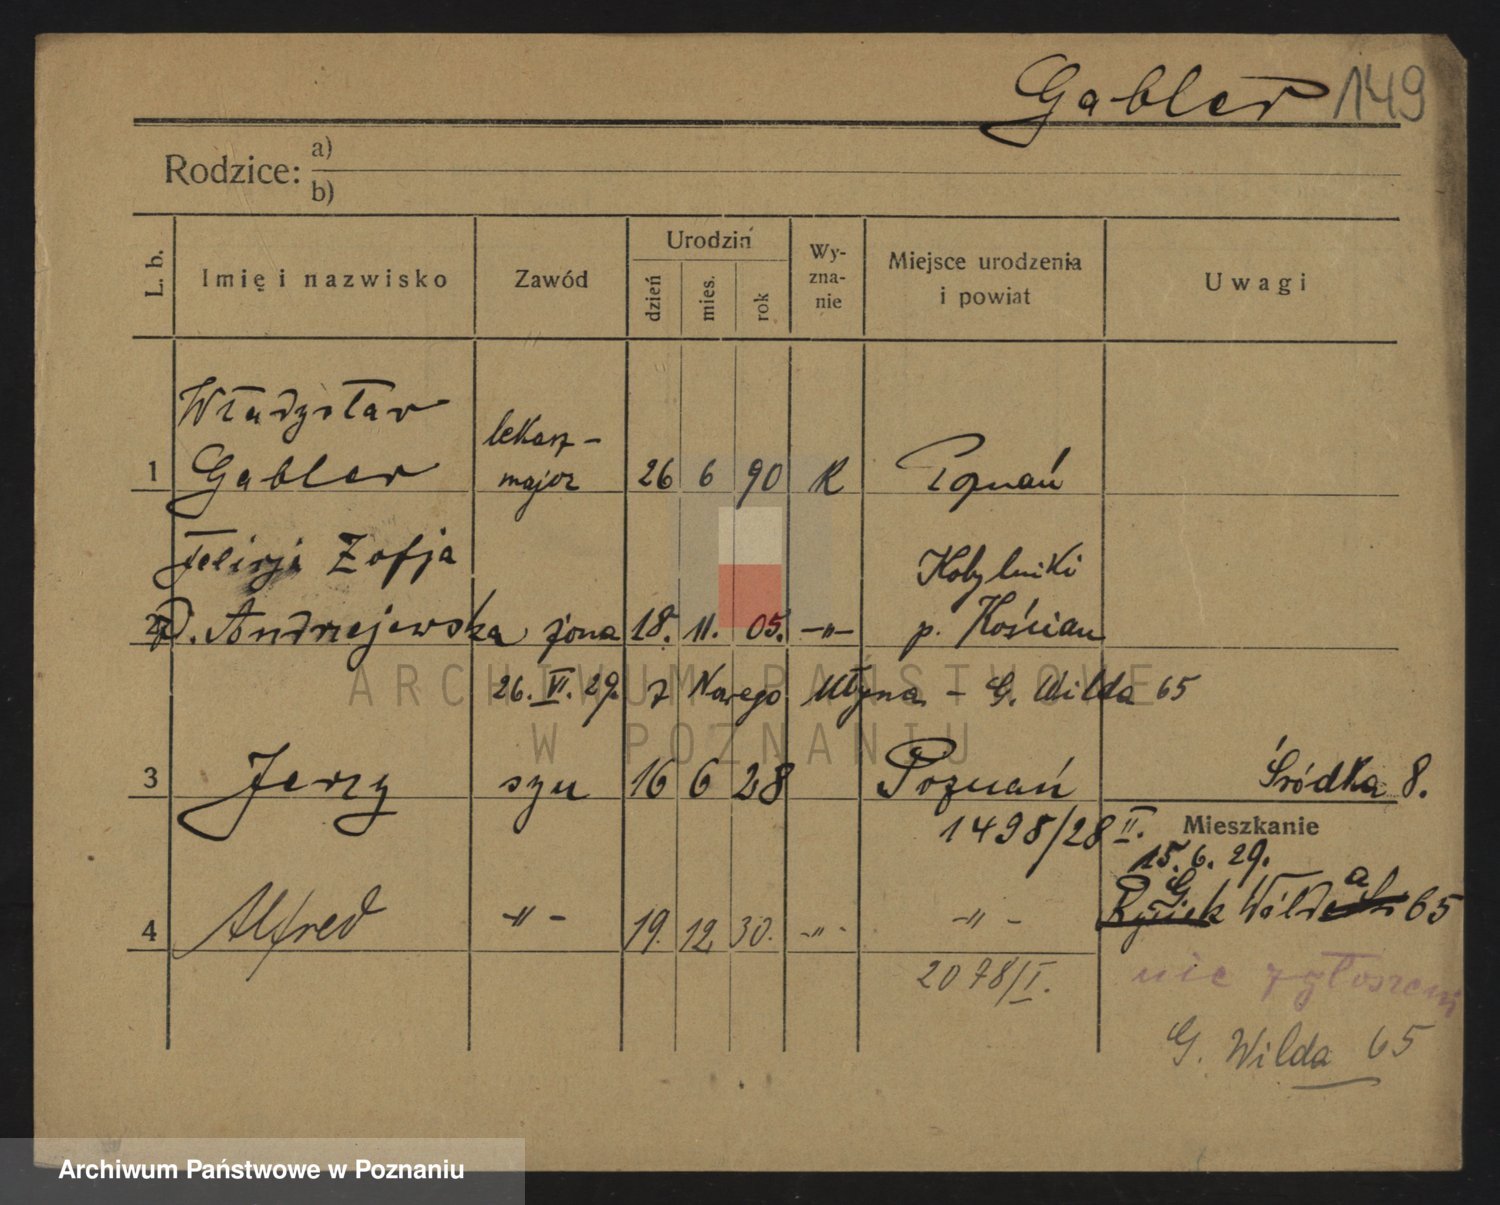 Gabler 149
Rodzice: a)
b)
L. b.
Imię i nazwisko
Zawód
Urodzin
dzień
mies.
rok
Wy-
zna-
nie
Miejsce urodzenia
i powiat
Uwagi
Władysław
Gabler
lekarz-
major
1
26 6 90 K Poznań
Felicja Zofja
Kobylniki
2 D. Andrzejewska żona 18. 11. 05. -"- p. Kościan
26. VI. 29. z Nowego Młyna - G. Wilda 65
3 Jerzy syn 16 6 28 Poznań Śródka 8.
1498/28 II. Mieszkanie
15. 6. 29.
G Wilda 65
4 Alfred -"- 19. 12. 30. -"- -"-
2078/I. nie zgłoszeni
G. Wilda 65
ARCHIWUM PAŃSTWOWE
W POZNANIU
Archiwum Państwowe w Poznaniu